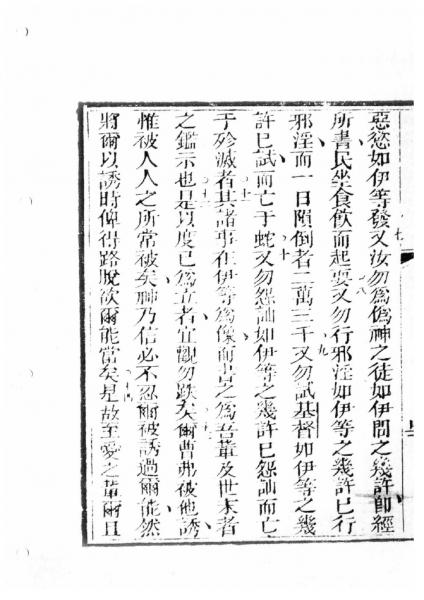 惡慾如伊等發又汝勿為偽神之徒如伊間之幾許即經
所書民坐食飲而起耍又勿行邪淫如伊等之幾許已行
邪淫而一日隕倒者二萬三千又勿試基督如伊等之幾
許已試而亡于蛇又勿怨訕如伊等之幾許已怨訕而亡
于殄滅者其諸事在伊等為像而書之為吾輩及世末者
之鑑示也是以度已為立者宜觀勿跌矣爾曹弗被他誘
惟被人人之所常被矣神乃信必不忍爾被誘過爾能然
將爾以誘時俾得路脫欲爾能當矣是故至愛之輩爾且